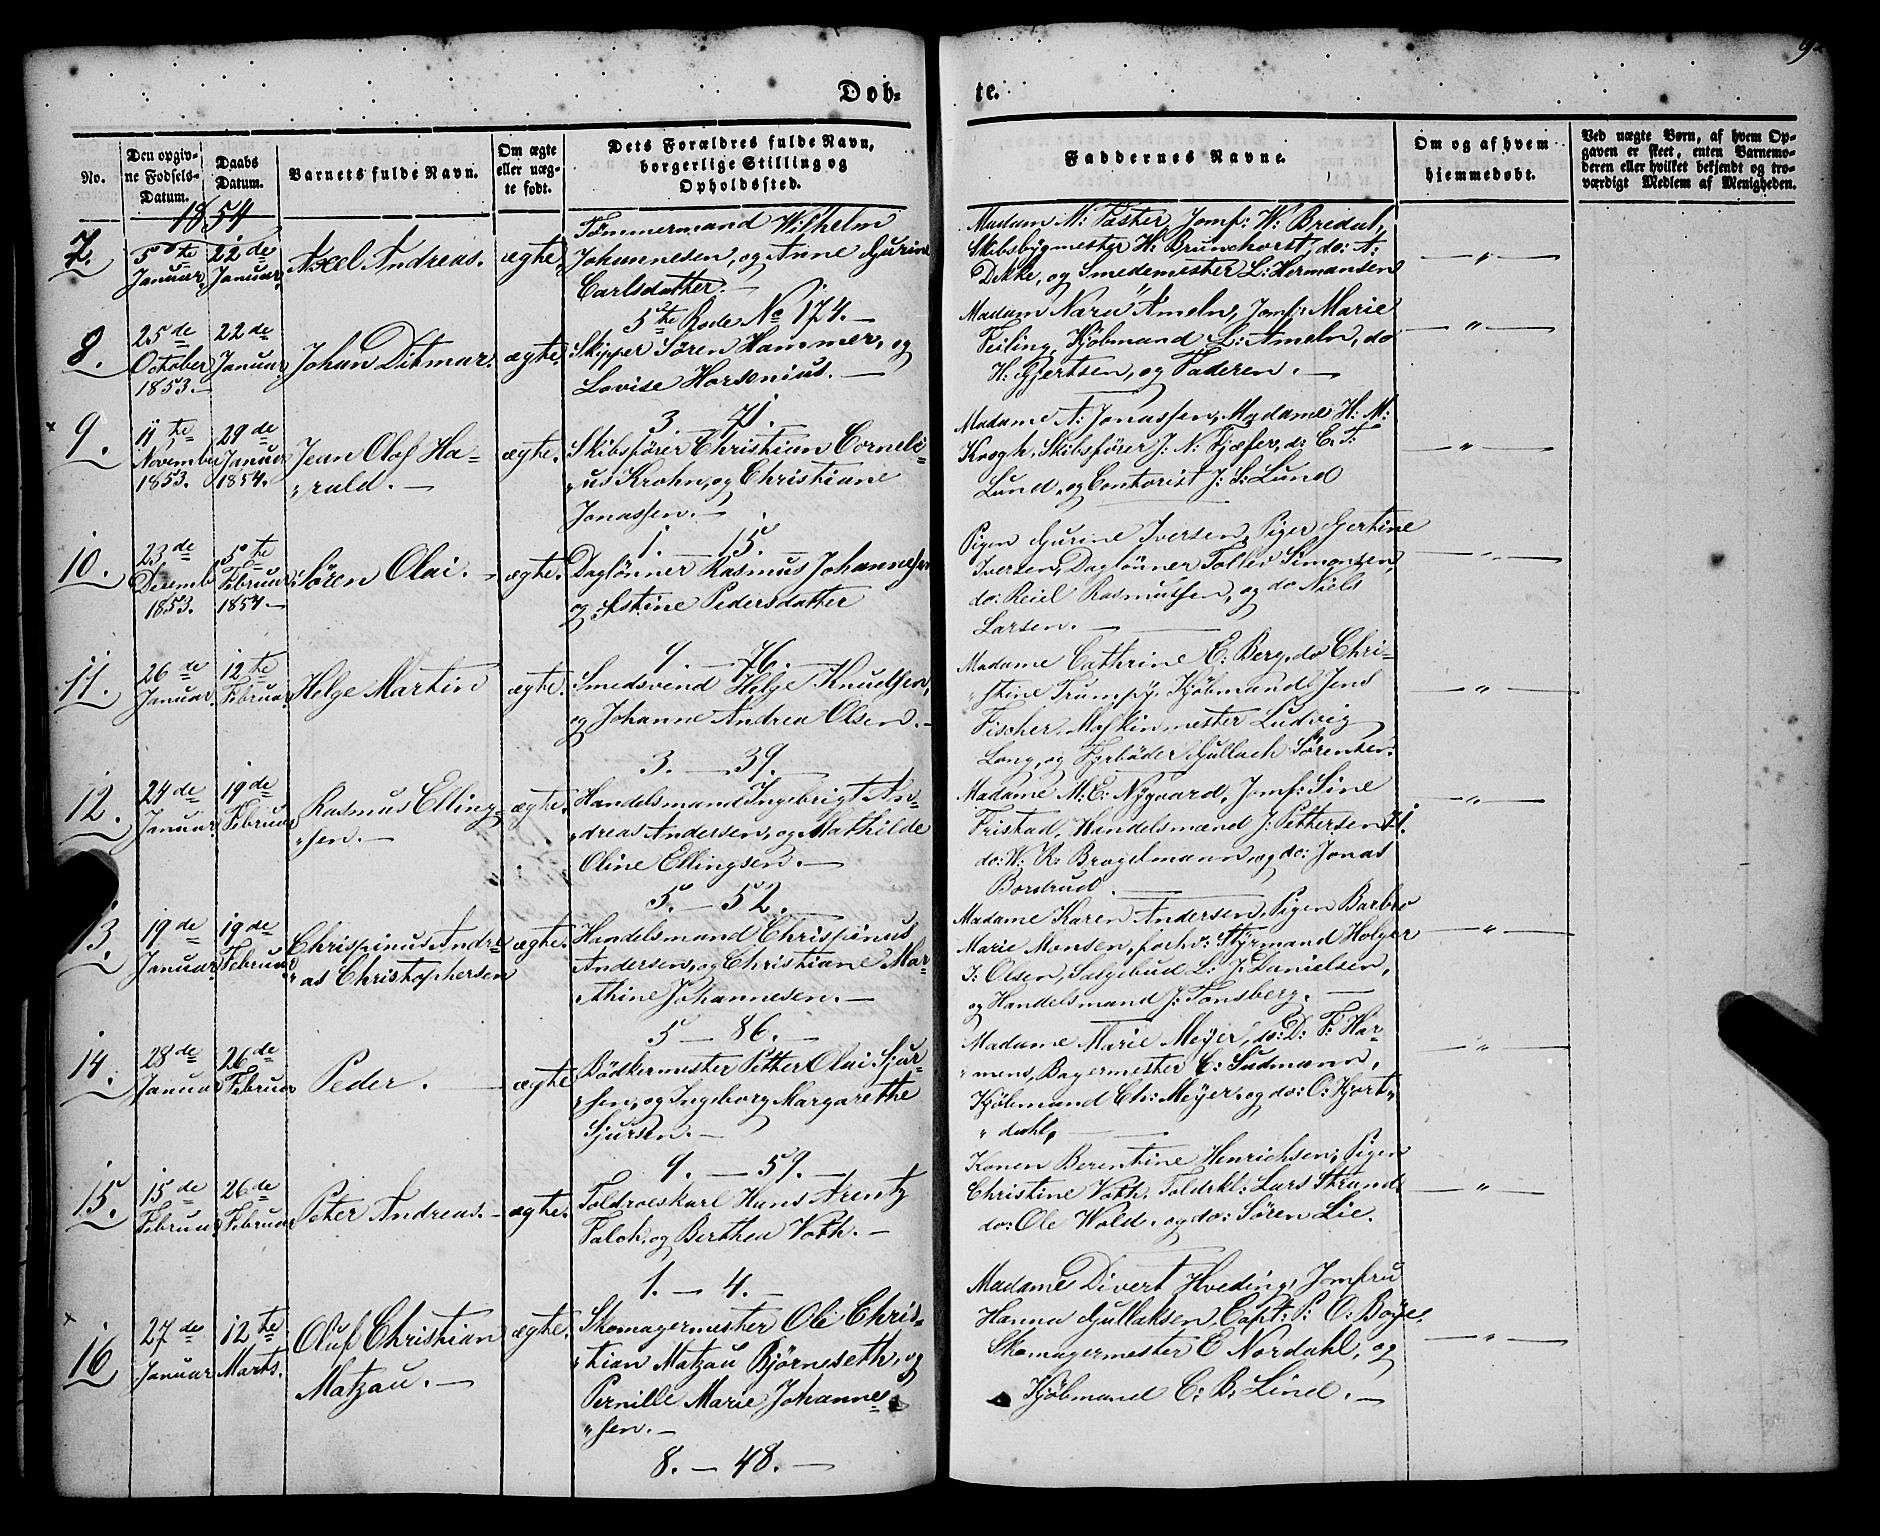 92
Døb-
te.
No.
Den opgiv-
ne Fødsels-
Datum.
Daabs
Datum.
Barnets fulde Navn.
Om ægte
eller uæg-
te født.
Dets Forældres fulde Navn,
borgerlige Stilling og
Opholdssted.
Faddernes Navne.
Om og af hvem
hjemmedøbt.
Ved uægte Børn, af hvem Op-
gaven er skeet, enten Barnemo-
deren eller hvilket bekjendt og tro-
værdigt Medlem af Menigheden.
1854
7.
5te
Januar.
22de
Januar.
Axel Andreas.
ægte.
Tømmermand Wilhelm
Johannesen, og Anne Gurine
Carlsdatter.
5te Rode No 174.
Madam M: Paster, Jomf: W: Bredal,
Skibsbygmester H: Brunchorst, do: A:
Dekke, og Smedemester L: Hermansen
8.
25de
October
1853.
22de
Januar.
Johan Ditmar.
ægte.
Skipper Søren Hammer, og
Lovise Horsenius.
3. — 71.
Madam Nara Ameln, Jomf: Marie
Feiling, Kjøbmand L: Ameln, do
H: Gjertsen, og Faderen.
9.
11te
Novembr
1853.
29de
Januar
1854.
Jean Olaf Ha-
rald.
ægte.
Skibsfører Christian Corneli-
us Krohn, og Christiane
Jonassen.
1. — 15.
Madame A: Jonassen, Madame H: M:
Krogh, Skibsfører J: N: Fjæser, d: C: F:
Lund, og Contorist J: S: Lund
10.
23de
Desemb
1853.
5te
Februar
1854.
Søren Olai.
ægte.
Daglønner Rasmus Johannesen
og Istine Pedersdatter
9. — 76.
Pigen Gurine Iversen, Piger Gjertine
Iversen, Daglønner Tollev Simonsen,
do: Reiel Rasmussen, og do Niels
Larsen.
11.
26de
Januar.
12te
Februar.
Helge Martin
ægte.
Smedsvend Helge Knudsen,
og Johanne Andrea Olsen.
3. — 39.
Madame Cathrine E: Berg, do Chri-
stine Trumpy, Kjøbmand Jens
Fischer, Maskinmester Ludvig
Long, og Fyrbøder Gullach Sørensen.
12.
24de
Januar.
19de
Februar
Rasmus Elling-
sen.
ægte.
Handelsmand Ingebrigt An-
dreas Andersen, og Mathilde
Oline Ellingsen.
5. — 52.
Madame M: E: Nygaard, Jomf: Sine
Fristad, Handelsmænd J: Pettersen
do: W: R: Brøgelmann, og do: Jonas
Bordrud.
13.
19de
Januar.
19de
Februar
Chrispinus Andre-
as Christophersen
ægte.
Handelsmand Chrispinus
Andersen, og Christiane Mar-
thine Johannesen.
5 — 86.
Madame Karen Andersen, Pigen Barbro
Marie Monsen, forhv: Styrmand Holger
T: Olsen, Salgebud L: J: Danielsen,
og Handelsmand J: Tønsberg.
14.
28de
Januar
26de
Februar
Peder.
ægte
Bødkermester Petter Olai Sjur-
sen, og Ingeborg Margarethe
Sjursen.
9. — 59.
Madame Marie Meyer, do: D: F: Har-
mens, Bagermester C: Sudmann,
Kjøbmand Ch: Meyer, og do: O: Hjort-
dahl,
15.
15de
Februar
26de
Februar
Peter Andreas.
ægte.
Toldroeskarl Hans Arentz
Falch, og Berthea Voth.
1. — 4.
Konen Berentine Henrichsen, Pigen
Christine Voth, Toldrkl: Lars Strand
do: Ole Wold, og do: Søren Lie.
16
27de
Januar
12te
Marts.
Oluf Christian
Matzau.
ægte.
Skomagermester Ole Chris-
tian Matzau Bjørneseth, og
Pernille Marie Johanne-
sen.
8. — 48.
Madame Divert Hveding, Jomfru
Hanna Gullaksen, Capt: P: C: Boye,
Skomagermester E Nordahl, og
Kjøbmand C: B: Lind.